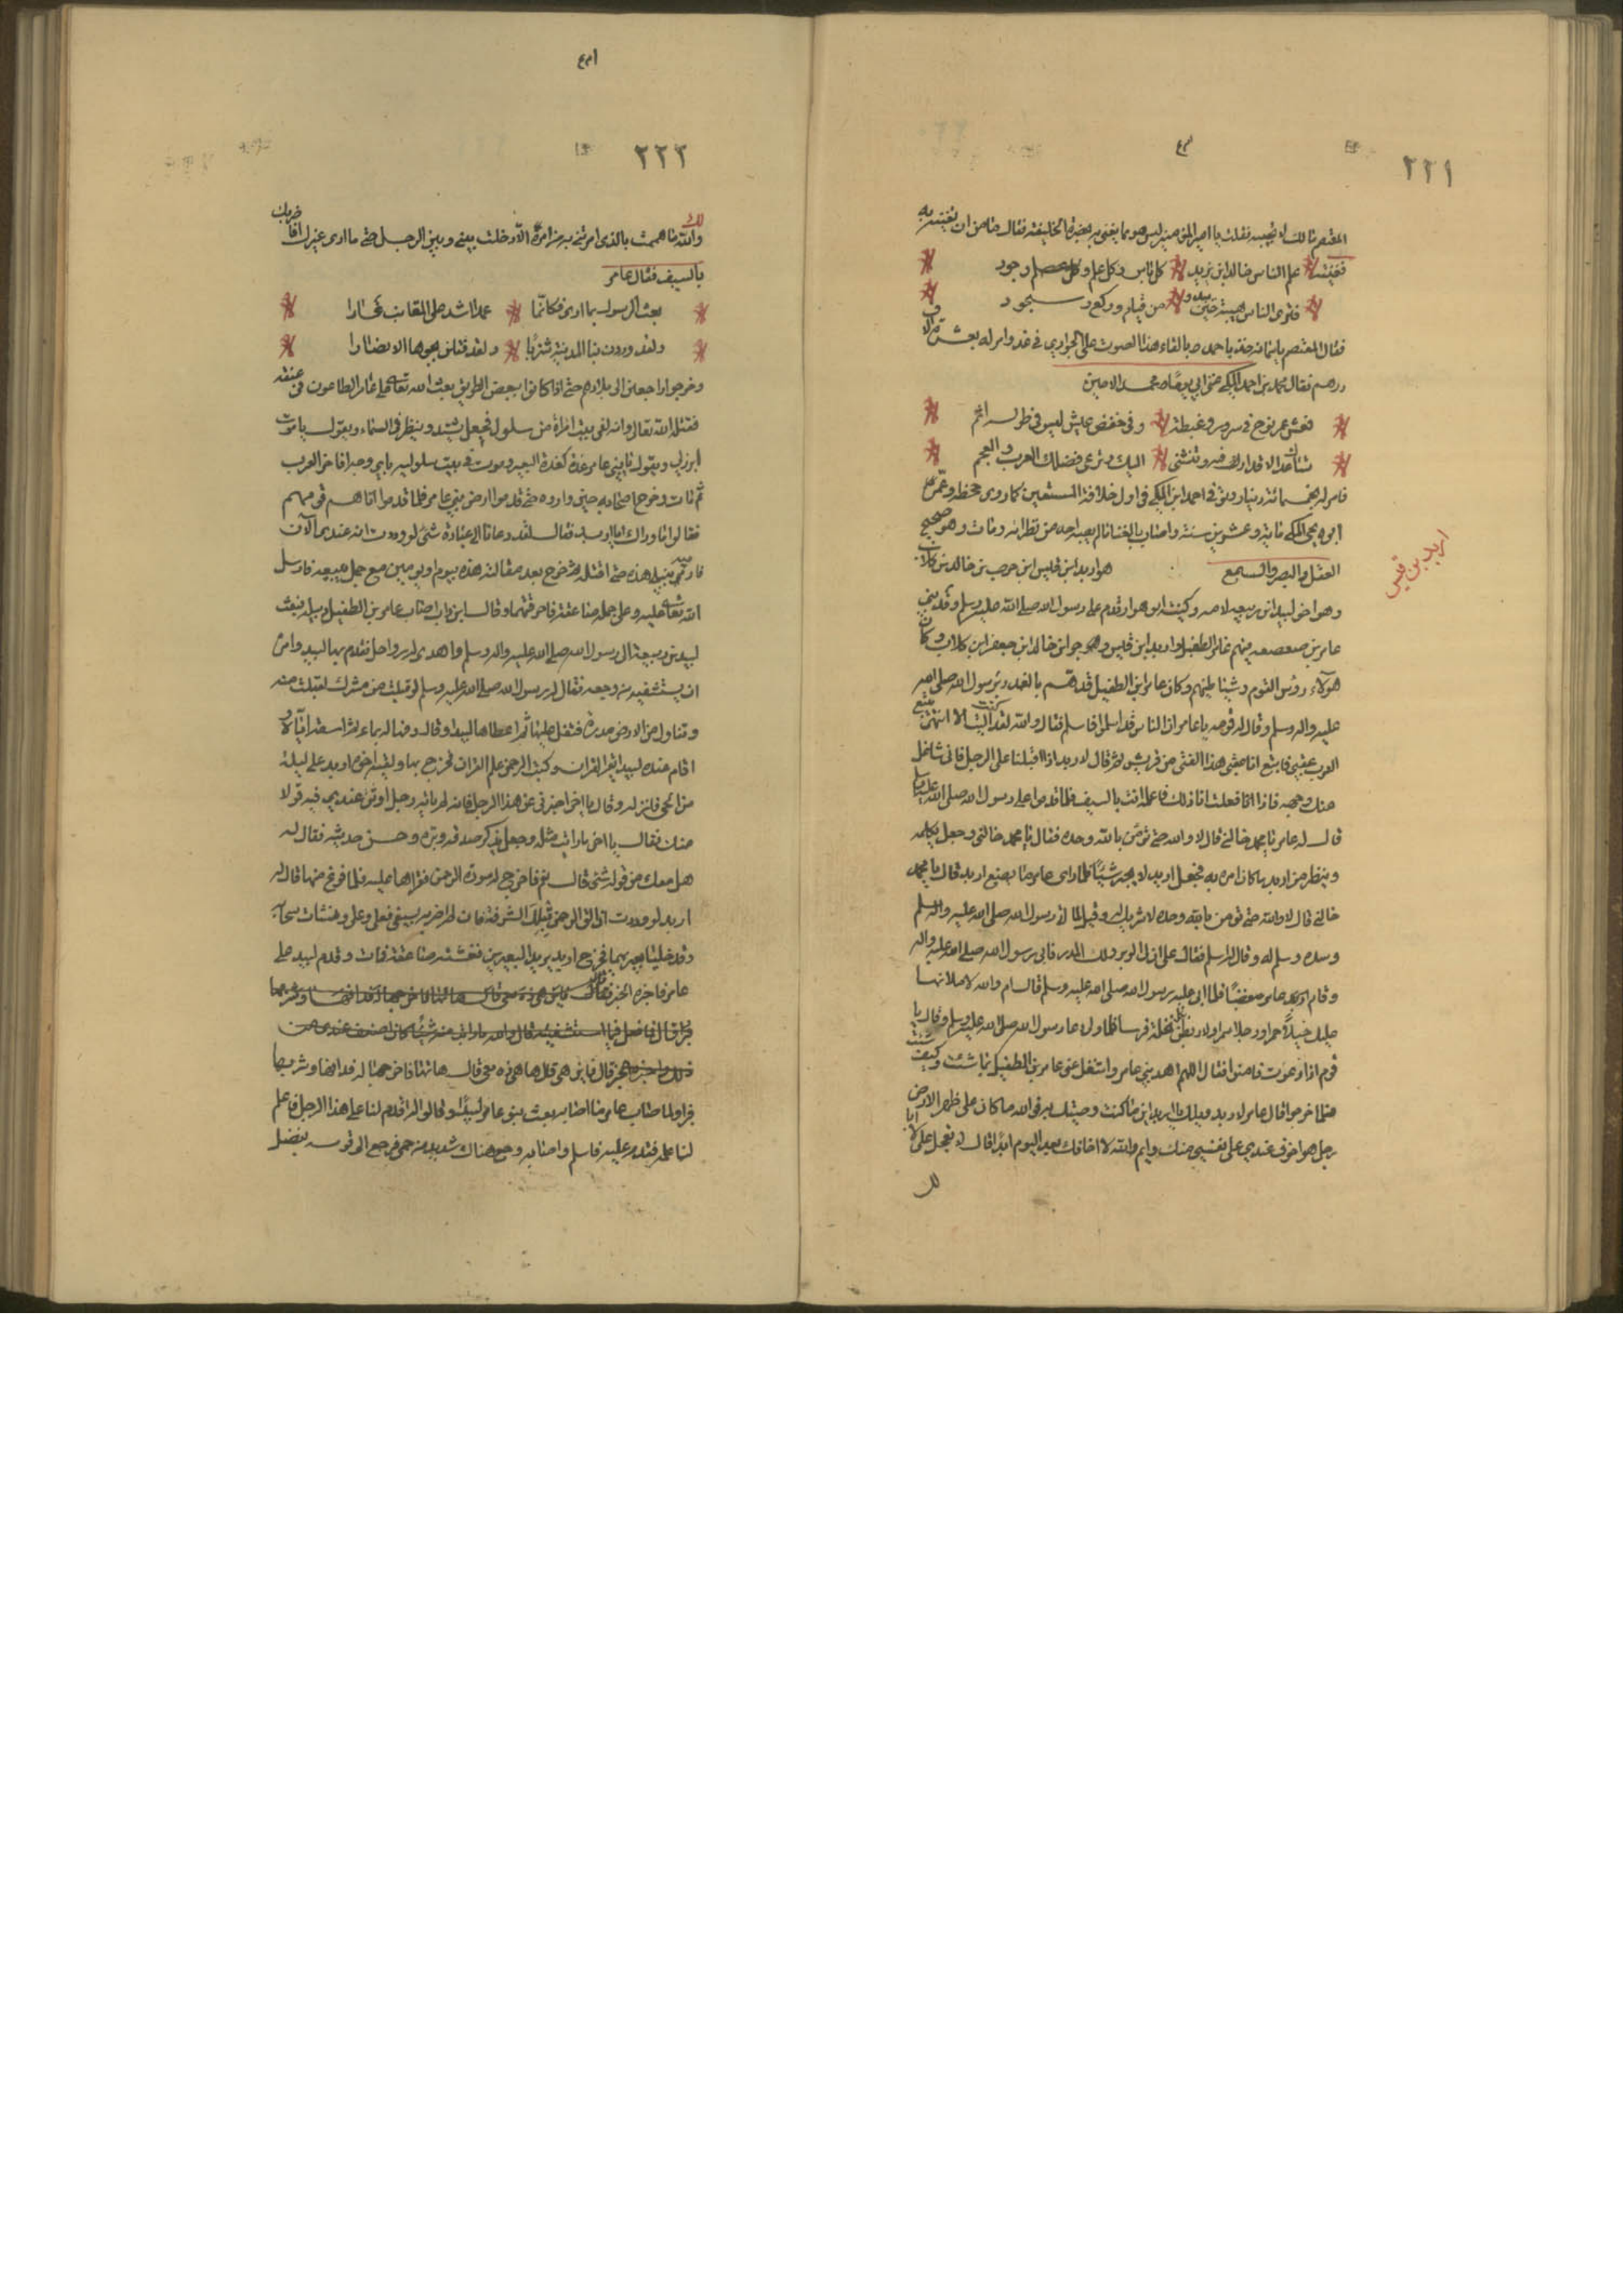 ٢٢١
المعتصم مالك لا تجيبه فقلت يا امير المؤمنين ليس هو مما يغنى به بحضرة الخليفة فقال ما من ان تغنيه به
فغنيته علم الناس خالد ابن يزيد كل باس وكل علم وجود
فترى الناس هيبة حين يبدو من قيام وركع وسجود
فقال المعتصم يا سمانه خذه يا احمد والقاء هذا الصوت على الجواري في غد وامر له بعشرة الاف
درهم فقال محمد بن احمد المكي غنى ابي محمد الامين
فعش عمر نوح في سرور وغبطة وفي خفض عيش ليس في طوله اثم
تساعدك الاقدار فيه وتنثني اليك وترعى فضلك العرب والعجم
فامر له بخمسمائة دينار وتوفى احمد ابن المكي في اول خلافة المستعين كما روى جحظه وعمر
ابوه يحيى المكي مائة وعشرين سنة واصاب بالغناء ما لم يصبه احد من نظرائه ومات وهو صحيح
العقل والبصر والسمع هو اربد ابن قيس ابن حرب بن خالد بن كلاب
اربد بن قيس
وهو اخو لبيد ابن ربيعه لامه وكنيته ابو هو ارقدم على رسول الله صلى الله عليه وسلم وفد بني
عامر بن صعصعه فيهم عامر الطفيل واربد ابن قيس وهو جو ابن خالد ابن جعفر ابن كلاب وكان
هؤلاء رؤس القوم وشياطينهم وكان عامر ابن الطفيل قد هم بالغدر برسول الله صلى الله
عليه واله وسلم وقال له قومه يا عامر ان الناس قد اسلموا فاسلم فقال والله لقد كنت اليت الا انتهى تتبع
العرب عقبي فاتبع انا عقبي هذا الفتى من قريش ثم قال لاربد اذا اقبلنا على الرجل فاني شاغل
عنك وجهه فاذا انا فعلت انا ذلك فاعله انت بالسيف فلما قدموا على رسول الله صلى الله عليه وسلم
قال له عامر يا محمد خالني قال لا والله حتى تؤمن بالله وحده فقال يا محمد خالني وجعل يكلمه
وينظر من اربد ما كان امره به فجعل اربد لا يحير شيئًا فلما راى عامر ما يصنع اربد قال يا محمد
خالني قال لا والله حتى تؤمن بالله وحده لا شريك له وقيل لما اتى رسول الله صلى الله عليه واله وسلم
وسده وسلم له وقال اسلم فقال على ان لي الوبر ولك المدر فابى رسول الله صلى الله عليه واله
وقام عامر مغضبًا فلما ابى عليه رسول الله صلى الله عليه وسلم قال ام والله لاملانها
عليك خيلاً حمرا ورجلا مردا ولاربطن بكل نخلة فرسا فلما ولى دعا رسول الله صلى الله عليه وسلم وقال يا
قوم اذا دعوت فامنوا فقال اللهم اهد بني عامر واشغل عني عامر بن الطفيل بما شئت وكيف شئت
فلما خرجوا قال عامر لاربد ويلك يا اربد اين ما كنت وصيتك به فوالله ما كان على ظهر الارض
رجل هو اخوف عندي على نفسي منك وايم والله لا اخافك بعد اليوم ابدا قال لا تعجل علي لا ابا
لك
٢٢٢
والله ما هممت بالذي امرتني به من امره الا دخلت بيني وبين الرجل حتى ما ارى غيرك افاضربك
بالسيف فقال عامر
بعث الرسول بما ارى فكانما عمدا شد على المقانب غارا
ولقد وردن بنا المدينة شزبا ولقد قتلن بجوها الانصارا
وخرجوا راجعين الى بلادهم حتى اذا كانوا ببعض الطريق بعث الله تعالى على عامر الطاعون في عنقه
فقتله الله تعالى وانه لفي بيت امراة من سلول فجعل يشتد وينظر في السماء ويقول يا موت
ابرز لي ويقول يا بني عامر غدة كغدة البعير وموت في بيت سلوليه
ثم مات وخرج اصحابه حين واروه حتى قدموا ارض بني عامر فلما قدموا اتاهم قومهم
فقالوا ما وراك يا اربد فقال لقد دعانا الى عبادة شئ لوددت انه عندي الان
فارميه بنبلي هذه حتى اقتله ثم خرج بعد مقالته هذه بيوم او يومين مع جمل يبيعه فارسل
الله تعالى عليه وعلى جمله صاعقة فاحرقتهما وقال ابن داب اصاب عامر بن الطفيل دبيلة فبعث
لبيد بن ربيعة الى رسول الله صلى الله عليه واله وسلم واهدى له رواحل فقدم بها لبيد وامره
ان يستشفيه من وجعه فقال له رسول الله صلى الله عليه وسلم لو قبلت من مشرك لقبلت منه
وتناول من الارض مدرة فتفل عليها ثم اعطاها لبيدا وقال دفها له بماء ثم اسقه اياه و
اقام عنده لبيد يقرا القران وكتب الرحمن علم القران فخرج بها ولقيه اخوه اربد على ليلة
من الحي فانزله وقال يا اخي اخبرني عن هذا الرجل فانه لم ياته رجل اوثق عندي فيه قولا
منك فقال يا اخي ما رايت مثله وجعل يذكر صدقه وبره وحسن حديثه فقال له
هل معك من قوله شئ قال نعم فاخرج له سورة الرحمن فقراها عليه فلما فرغ منها قال له
اربد لوددت اني القى الرحمن بتلك الشرفة فان لم اضربه بسيفي فعلي وعلي ونشات سحابه
وقد خليا بعيريهما فخرج اربد يريد البعيرين فغشته صاعقة فمات وقدم لبيد على
عامر فاخبره الخبر
قال فما فعل فيما استشفيته قال والله ما رايت منه شيئًا كان اضعف عندي من
ذلك واخبره الخبر قال فاين هي قال ها هي ذه معي قال هاتها فاخرجها له فدافها وشربها
فبرا ولما اصاب عامر ما اصابه بعث بنو عامر لبيدًا وقالوا اقدم لنا على هذا الرجل فاعلم
لنا علمه فقدم عليه فاسلم واصابه وجع هناك شديد من حمى فرجع الى قومه بفضل